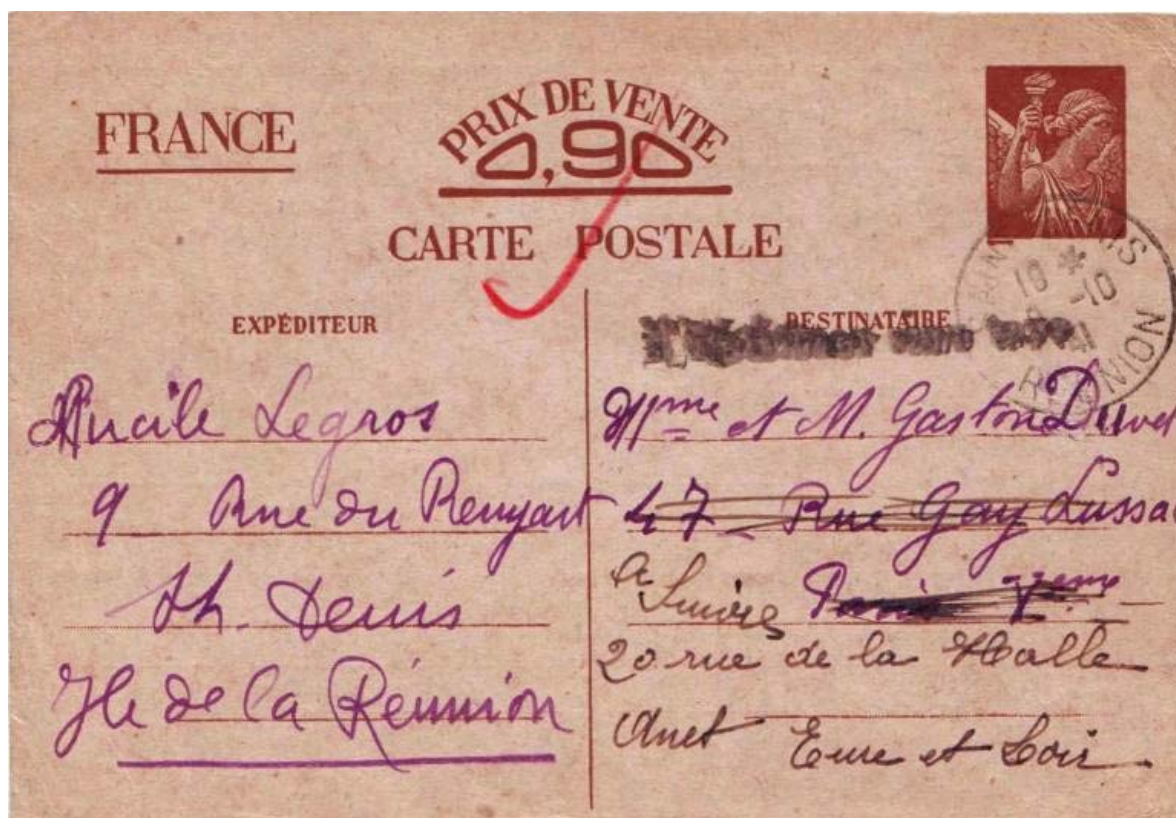 FRANCE
PRIX DE VENTE
0,90
CARTE POSTALE
EXPÉDITEUR
Legros
9 Rue du Rempart
St. Denis
Ile de la Réunion
DESTINATAIRE
Mme et M. Gaston
47 Rue Gay Lussac
a Suivre Paris Vème
20 rue de la Halle
Anet Eure et Loir
RÉUNION